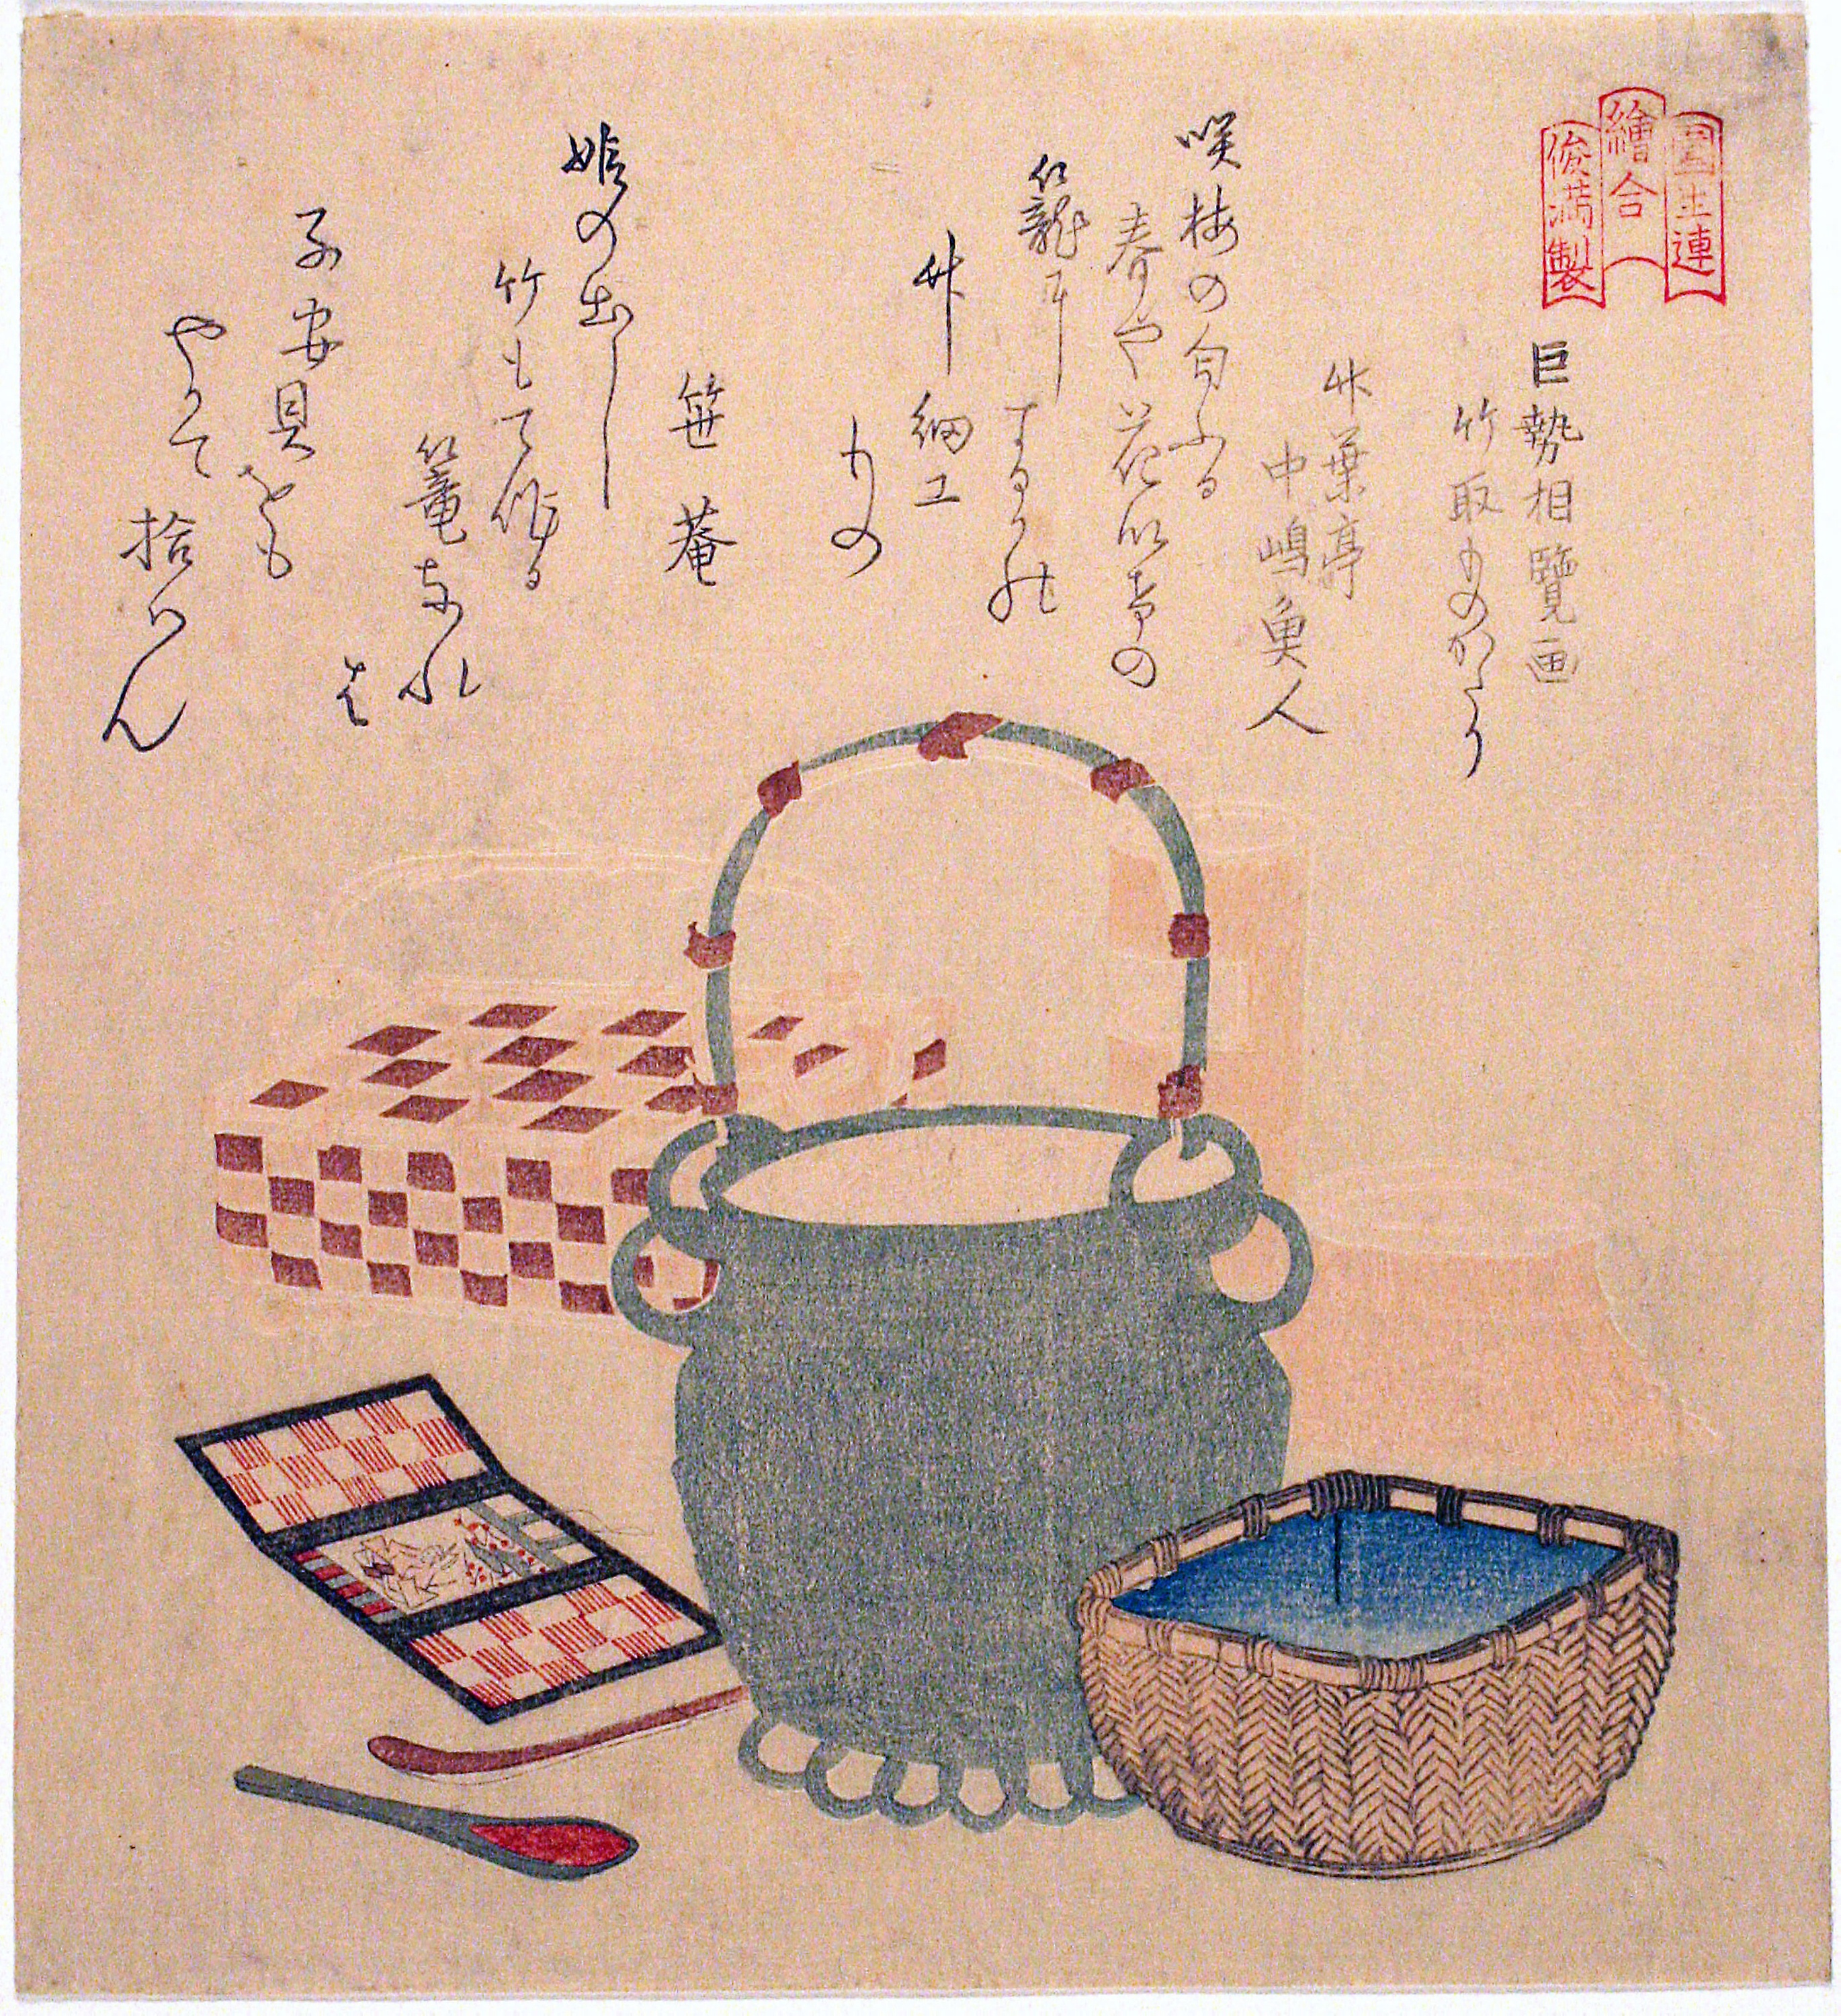 連
繪合
俊満製
巨勢相覽画
竹取ものかたり
竹葉亭
中嶋魚人
咲梅の匂ふる
春や花以春の
籠耳
する
竹細工
もの
笹菴
姫の出し
竹もて作る
篭なれ
は
子安貝
をも
やかて
拾はん